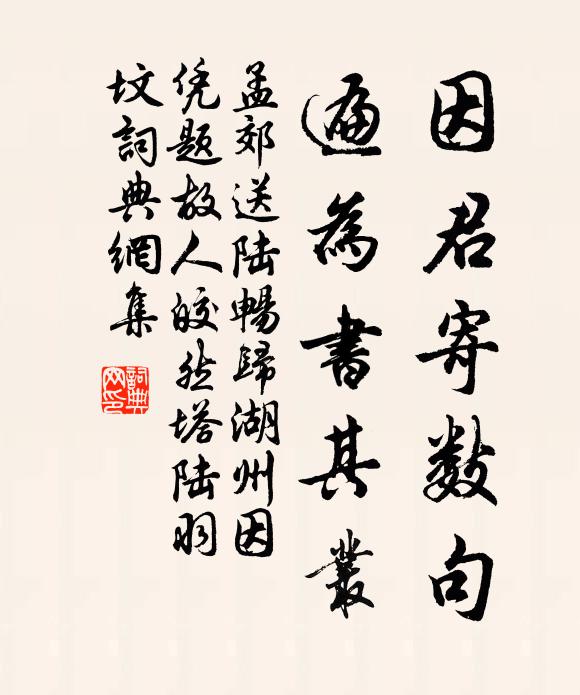 因君寄數句
遍為書其叢
孟郊送陸暢歸湖州因
凭題故人皎然塔陸羽
坟詞典網集
詞典
网印